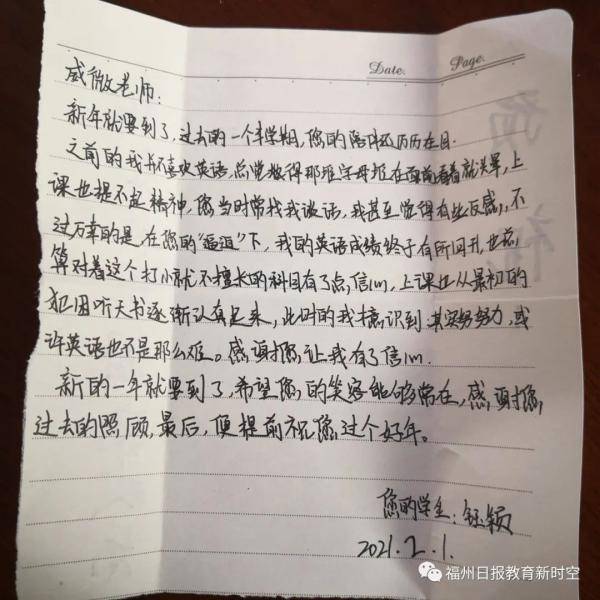 Date. Page.
威微老师:
新年就要到了,过去的一个半学期,您的陪伴还历历在目。
之前的我并不喜欢英语,总觉得那堆字母摆在面前看着就头晕,上
课也提不起精神,您当时常找我谈话,我甚至觉得有些反感,不
过万幸的是,在您的“逼迫”下,我的英语成绩终于有所回升,也
算对着这个打小就不擅长的科目有了点信心,上课也从最初的
犯困听天书逐渐认真起来,此时的我才意识到,其实努努力,或
许英语也不是那么难。感谢您,让我有了信心。
新的一年就要到了,希望您的笑容能够常在,感谢您
过去的照顾,最后,便提前祝您过个好年。
您的学生:钰颖
2021.2.1.
福州日报教育新时空